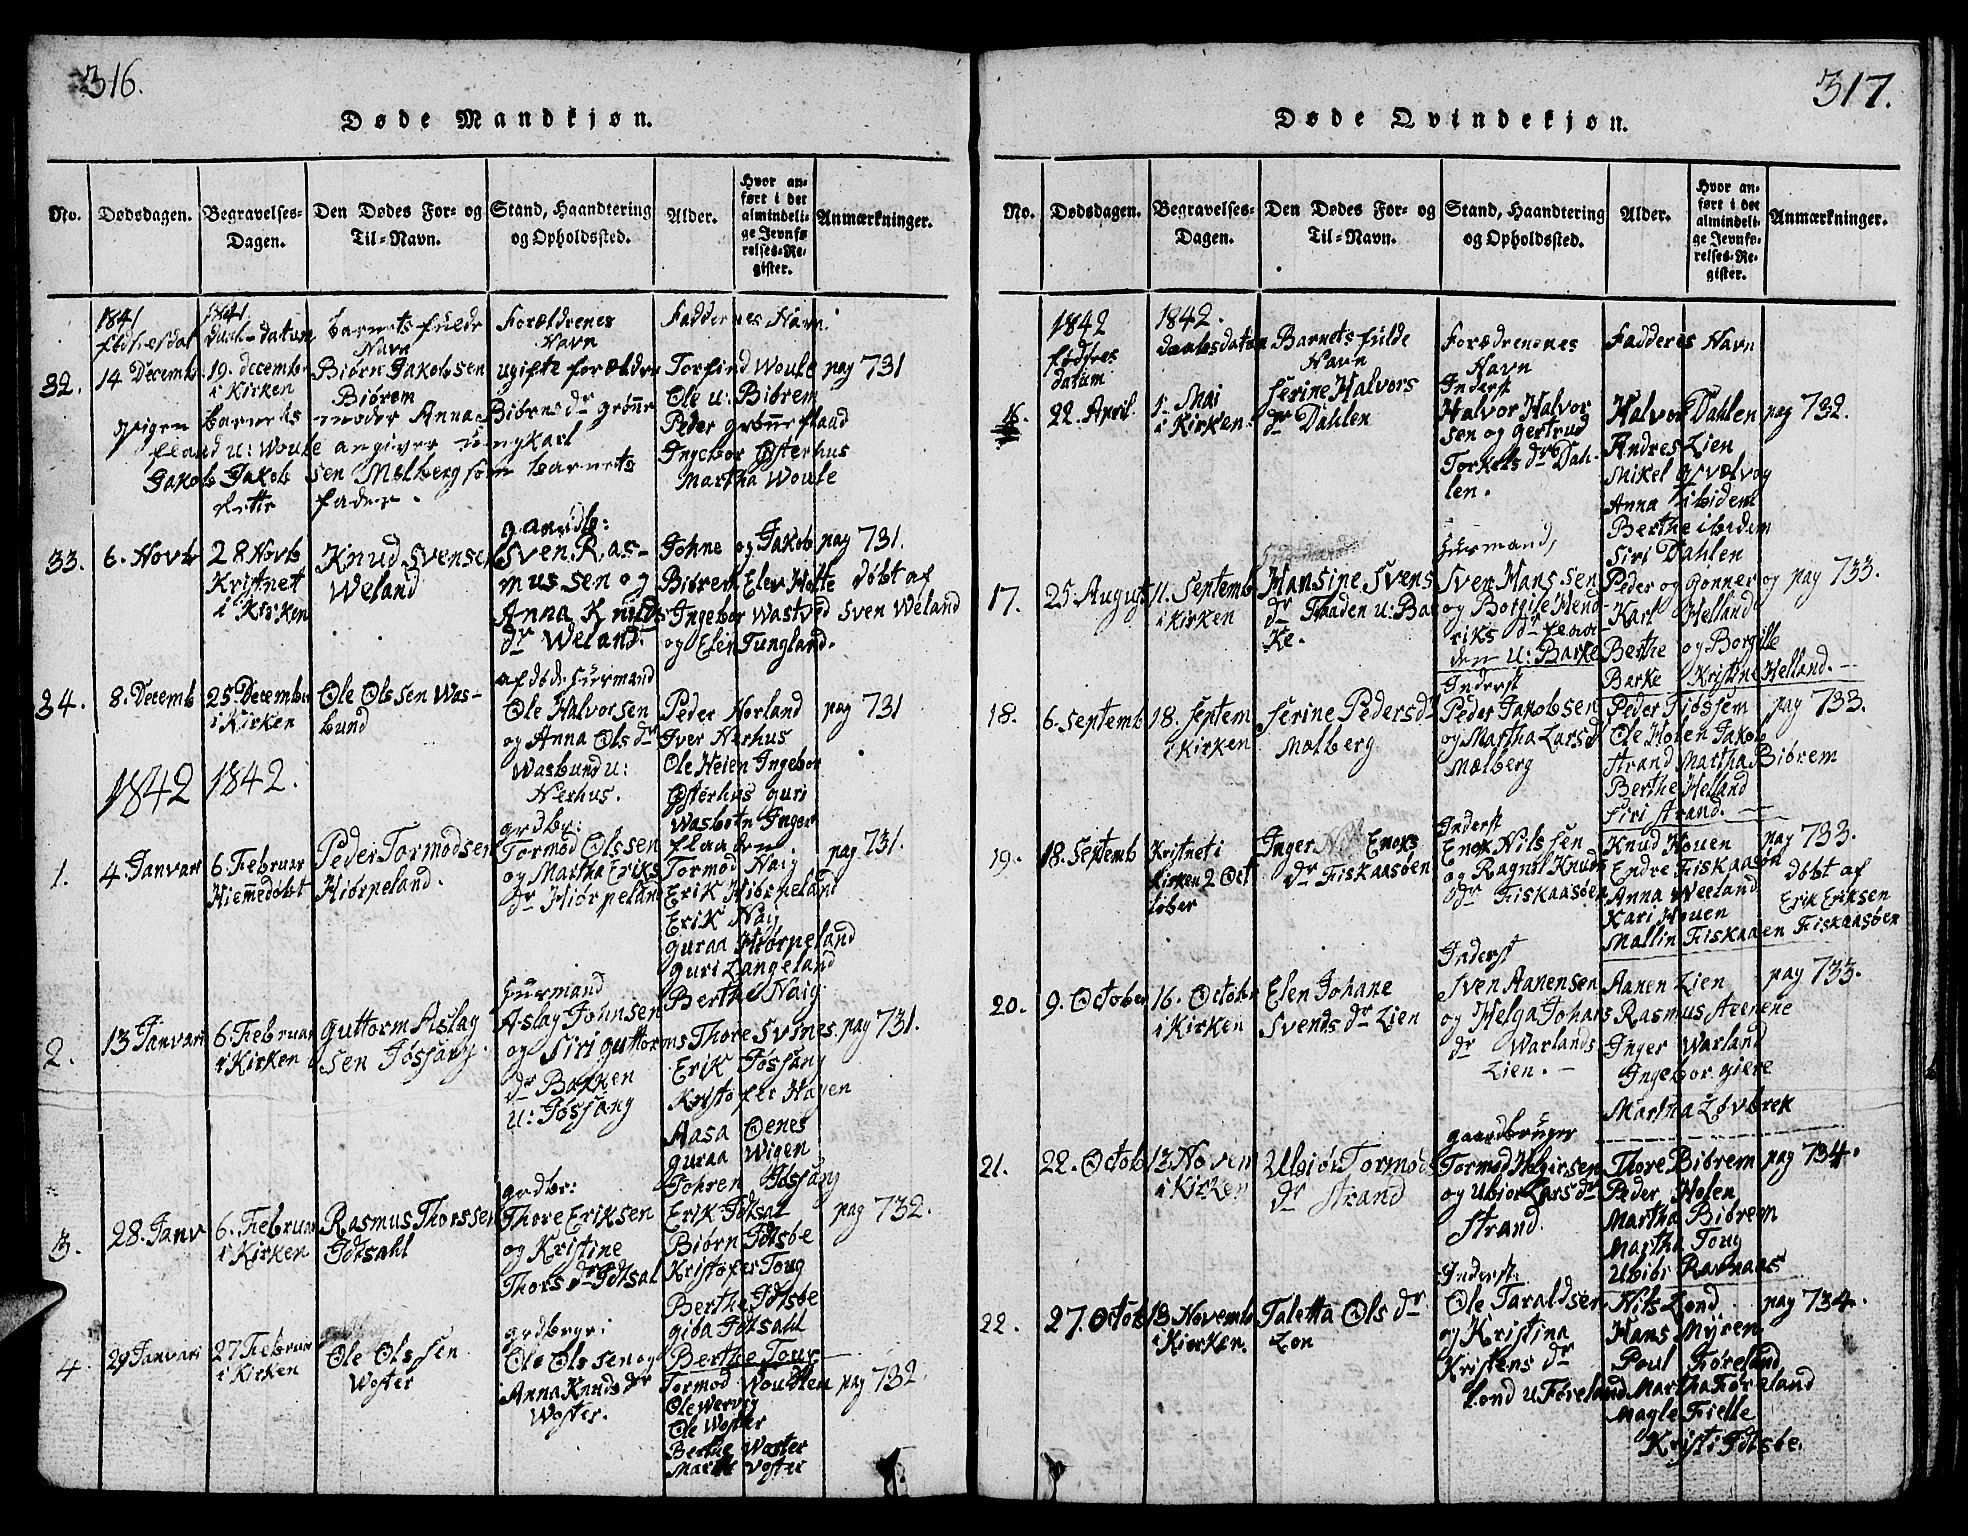 316.
Døde Mandkjøn.
No.
Dødsdagen.
Begravelses-
Dagen.
Den Dødes For- og
Til-Navn.
Stand, Haandtering
og Opholdssted.
Alder.
Hvor an-
ført i det
almindeli-
ge Jevnfø-
relses-Re-
gister.
Anmærkninger.
1841
1841.
Daabs-datum
barnets fulde
Navn
Forældrenes
Navn
Faddernes Navn.
32.
14 Decemb
19. decembr
i Kirken
Biørn Jakobsen
Biørem
ugifte forældre
Torfind Woule
Ole u: Biørem
Peder Grønnefland
Ingebor Østerhus
Martha Woule
pag 731
pigen barnets moder Anna Biørnsdr Grønne
fland u: Woule angiver ungkarl
Jakob Jakobsen Molberg som barnets
rette fader.
33.
6. Novb
28 Novb
Kristnet
i Kirken
Knud Svensen
Weland
gaardb:
Sven Ras-
mussen og
Anna Knuds
dr Weland.
Johne og Jakob
Biørem Elev Holte
Ingebor Wastved
og Elen Tungland.
pag 731.
døbt af
Sven Weland
34.
8. Decemb
25. Decembr
i Kirken
Ole Olssen Was-
bund
afdøde Huusmand
Ole Halvorsen
og Anna Ols dr
Wasbund u:
Nerhus.
Peder Norland
Iver Nerhus
Ole Heien Ingebor
Østerhus Guri
Wasbotn Inger
Flaaden.
pag 731
1842
1842.
1.
4 Januari
6. Februar
Hiemmedøbt
Peder Tormodsen
Hiørpeland.
grdbr:
Tormod Olssen
og Martha Eriks
dr Hiørpeland
Tormod Naig
Erik Hiørpeland
Erik Naig
Guraa Hiørpeland
Guri Langeland
Berthe Naig
pag 731.
2.
13 Januari
6 Februar
i Kirken
Guttorm Aslag
sen Jøssang.
Huusmand
Aslag Johnsen
og Siri Guttorms
dr Bakken
u: Jøssang
Thore Svines.
Erik Jøssang
Kristofer Hagen
Aasa Oenes
Guraa Wigen
Johren Jøssang
pag 731.
3.
28. Janv
6. Februar
i Kirken
Rasmus Thorssen
Idtsahl
grdbr:
Thore Eriksen
og Kristine
Thors dr Idtsal
Erik Idtsal
Biørn Idtsøe
Kristofer Toug
Berthe Idtsøe
Giøa Idtsahl
Berthe Toug
pag 732.
4.
29 Januari
27 Februar
i Kirken
Ole Olssen
Woster
Ole Olssen og
Anna Knuds dr
Woster.
Tormod Woudlen
Ole Wervig
Ole Woster
Berthe Woster
Marthe Voster
pag 732.
317.
Døde Qvindekjøn.
No.
Dødsdagen.
Begravelses-
Dagen.
Den Dødes For- og
Til-Navn.
Stand, Haandtering
og Opholdssted.
Alder.
Hvor an-
ført i det
almindeli-
ge Jevnfø-
relses-Re-
gister.
Anmærkninger.
1842
fødsres
datum
1842.
daabsdatum
Barnets fulde
Navn
Forædrenenes
Navn
Fadderes Navn
16.
22. April.
1. Mai
i Kirken.
Serine Halvors
dr Dahlen
Inderst
Halvor Halvor
sen og Gertrud
Torkels dr Dah-
len.
Halvor Dahlen
Andres Lien
Mikel Qvælvog
Anna ibidem
Berthe ibidem
Siri Dahlen
pag 732.
17.
25. August
11. Septemb
i Kirken
Hansine Svens
dr Flaaden u: Bar
ke.
Huusmand,
Sven Hanssen
og Borgile Hend-
riks dr Flaa-
den u: Barke
Peder og Gonner og
Karl Helland
Berthe og Borgille
Barke Kristine Helland.
pag 733.
18.
6. Septemb
18. Septem
i Kirken
Serine Pedersdr
Molberg
Inderst
Peder Jakobsen
og Martha Larsd
Mølberg
Peder Fiøssem
Ole Holen Jakob
Strand Martha Biørem
Berthe Helland
Siri Strand.
pag 733.
19.
18. Septemb
Kristnet i
Kirken 2 Oct
tober
Inger Enoks
dr Fiskaasøen
Inderst
Enok Nilssen
og Ragnil Knuds
dr Fiskaasøen
Knud Houen
Endre Fiskaaen
Anna Weeland
Kari Houen
Mallin Fiskaaen
pag 733.
døbt af
Erik Eriksen
Fiskaasøen
20.
9. October
16. Octobr
i Kirken
Elen Johane
Svends dr Lien
Inderst
Sven Aanensen
og Helga Johans
dr Warlands
Lien.
Aanen Lien
Rasmus Steenene
Inger Warland
Ingebor Giere
Martha Løvbrek
pag 733.
21.
22. Octob
13 Novem
i Kirken
Ubiør Tormods
dr Strand
gaardbruger
Tormod Helgirsen
og Ubior Lars dr
Strand.
Thore Biørem
Peder Holen
Martha Biørem
Martha Toug
Ubiør Ravnaas
pag 734.
22.
27. Octob
13 Novemb
i Kierken.
Taletta Ols dr
Lon
Inderst.
Ole Taraldsen
og Kristina
Kristens dr
Lond u Føreland
Nils Lond
Hans Myren
Poul Føreland
Martha Føreland
Magle Fielle
Kristi Idtsøe.
pag 734.